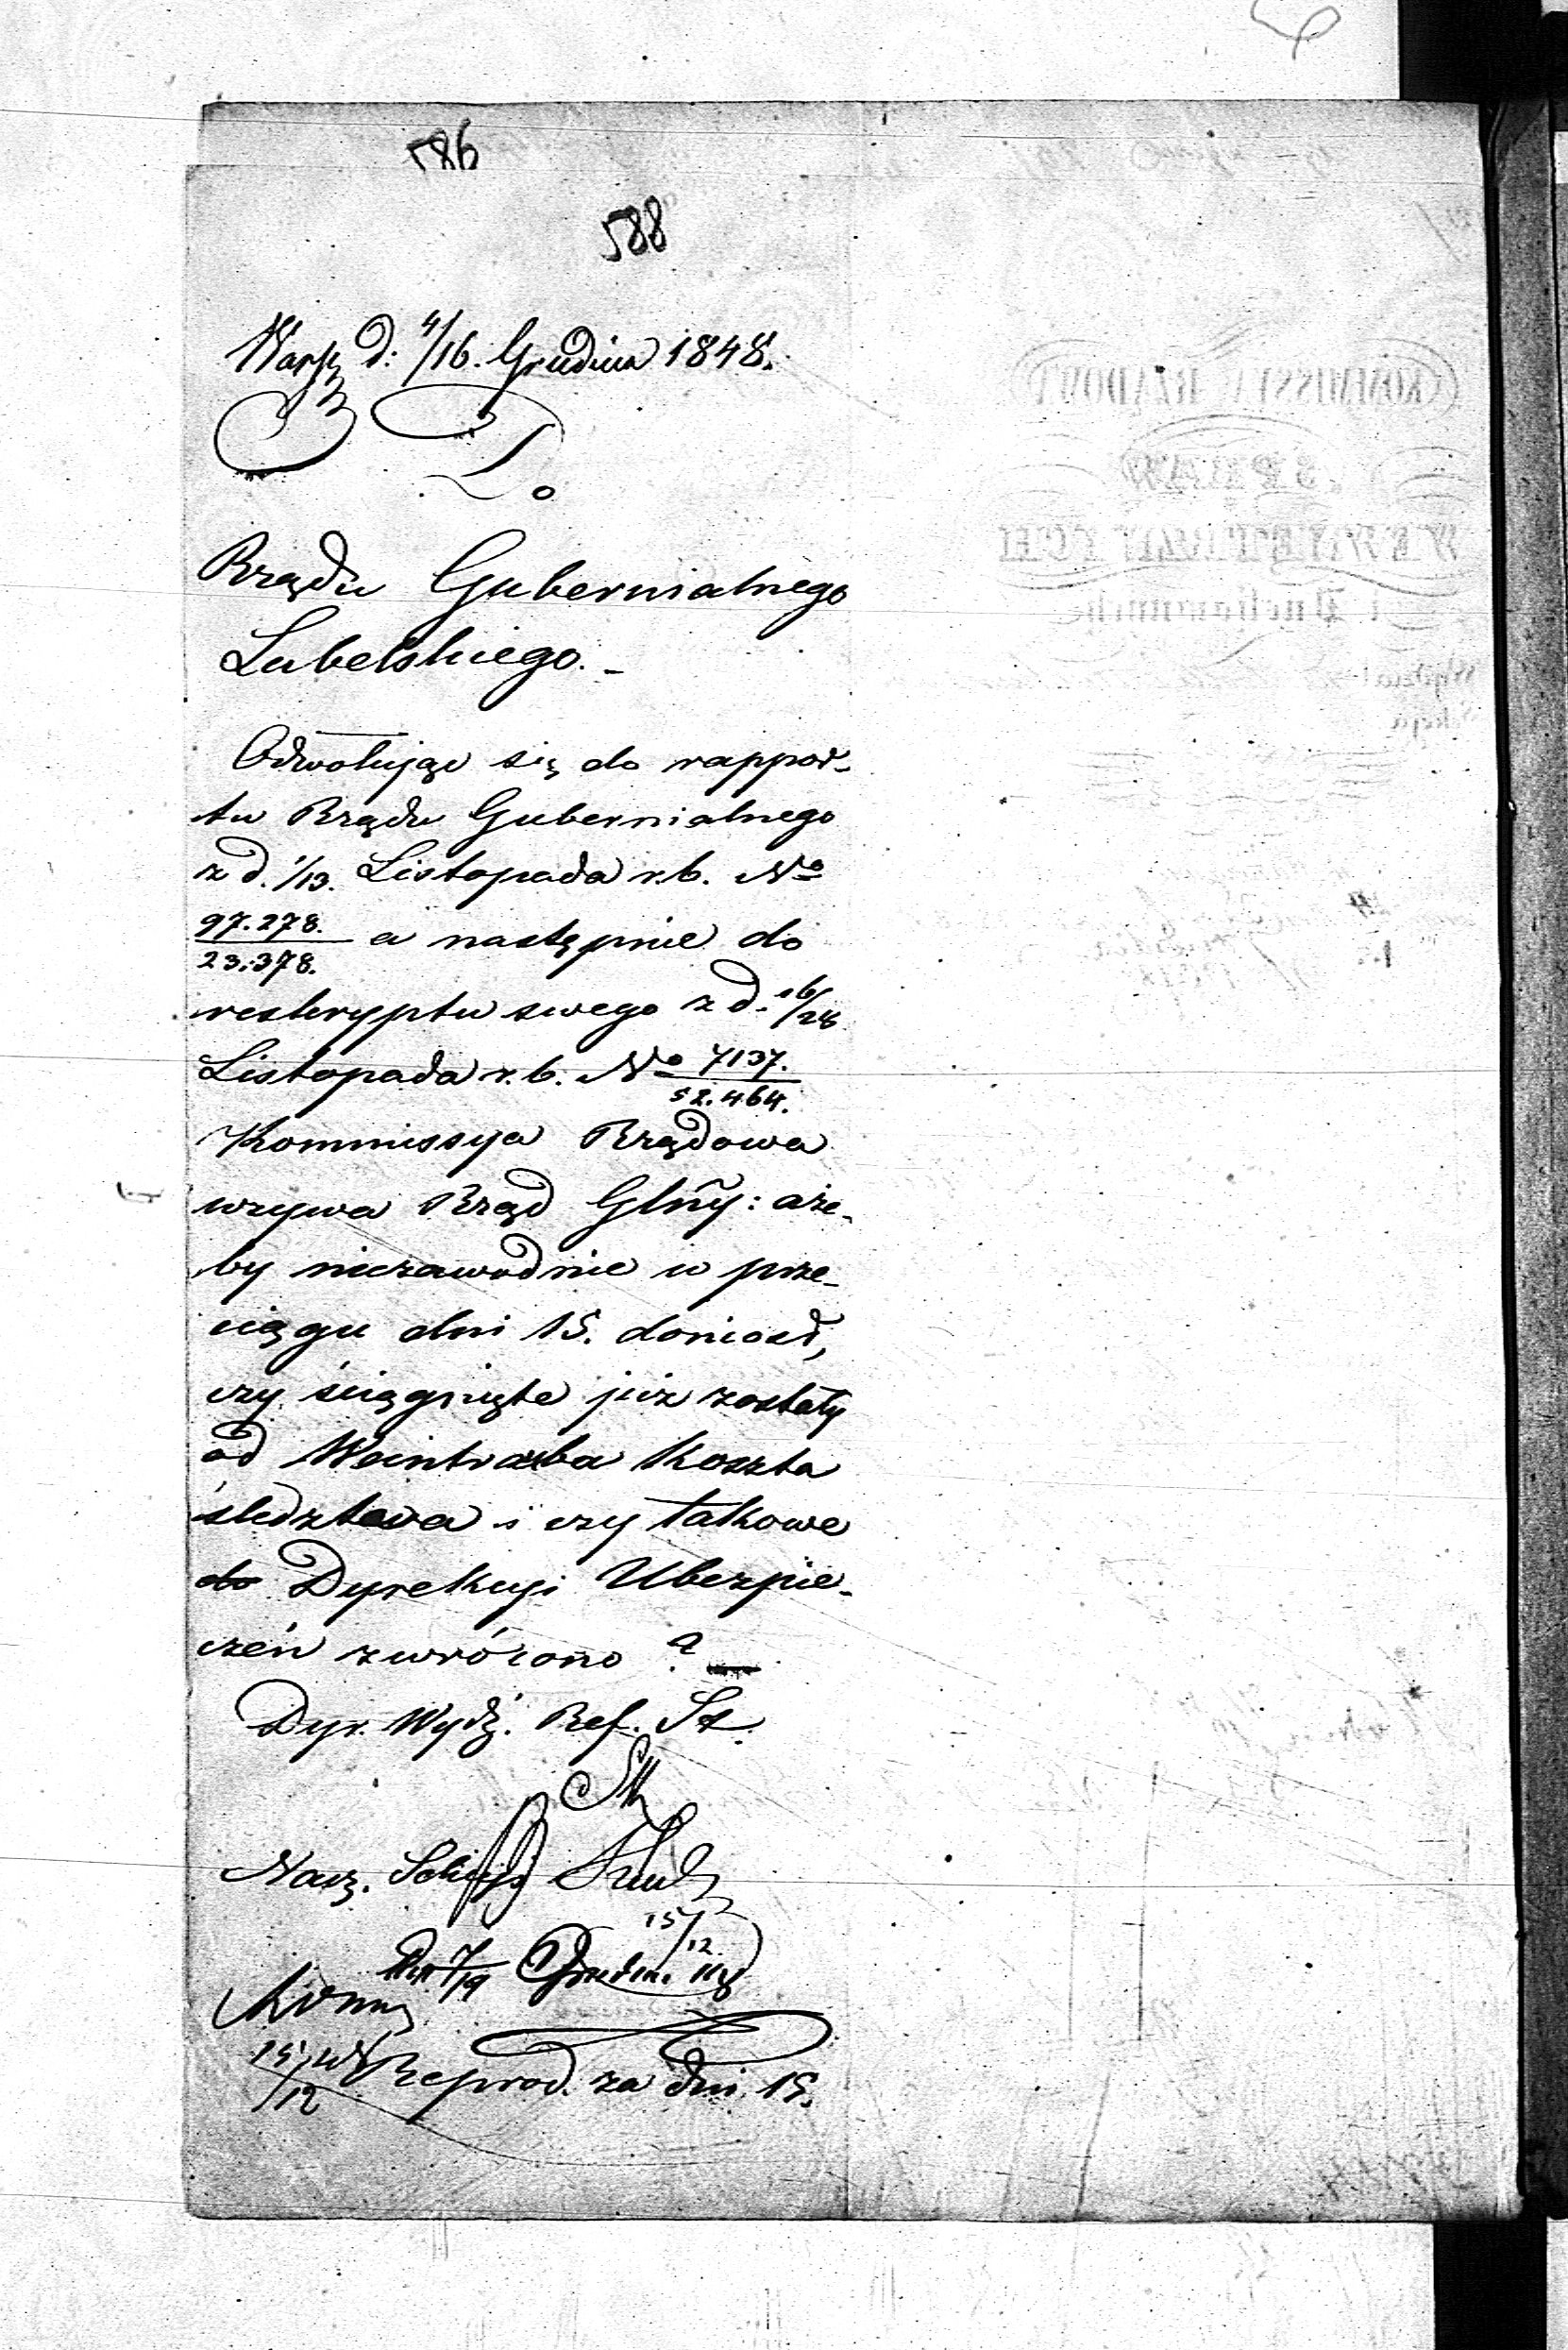 586
588
Warsz d: 4/16. Grudnia 1848.
Do
Rządu Gubernialnego
Lubelskiego. -
Odwołując się do rappor-
tu Rządu Gubernialnego
z d. 1/13. Listopada r. b. No
97.278./23.378. a następnie do
reskryptu swego z d. 16/28
Listopada r. b. No 7137./52.464.
Kommissya Rządowa
wzywa Rząd Glny: aże-
by niezawodnie w prze-
ciągu dni 15. doniosł,
czy ściągnięte już zostały
od Weintrauba koszta
śledztwa i czy takowe
do Dyrekcyi Ubezpie-
czeń zwrócono ? —
Dyr. Wydz. Ref. St.
Nacz. Sekcyi
15/12
7/19 Grudnia
15/12
Reprod. za dni 15.
KOMMISSYA RZĄDOWA
SPRAW
WEWNĘTRZNYCH
i Duchownych
Wydział
Sekcya